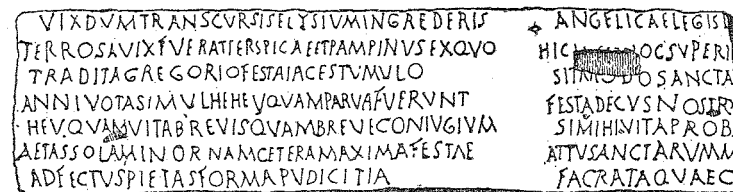 VIXDVMTRANSCVRSISELYSIVMINGRAEDERIS
TERROSAVIXFVERATTERSPICAEETPAMPINVSEXQVO
TRADITAGREGORIOFESTAIACESTVMVLO
ANNIVOTASIMVLHEHEVQVAMPARVAFVERVNT
HEVQVAMVITABREVISQVAMBREVECONIVGIVM
AETASSOLAMINORNAMCETERAMAXIMAFESTAE
ADFECTVSPIETASFORMAPVDICITIA
ANGELICAELEGISD
HIC OCSVPERI
SITMODOSANCTA
FESTADECVSNOSTR
SIMIHIVITAPROB
ATTVSANCTARVMM
FACRATAQVAEC